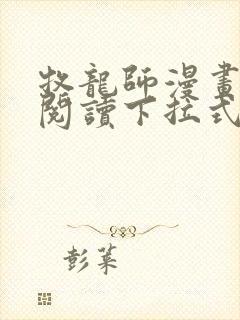 牧龍師漫畫
閱讀下拉式
彭萊